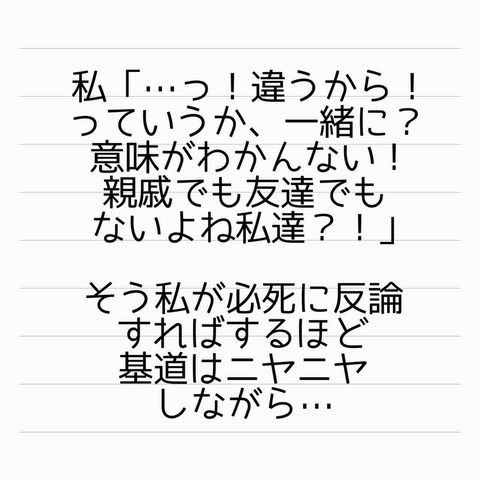 私「…っ！違うから！
っていうか、一緒に？
意味がわかんない！
親戚でも友達でも
ないよね私達？！」
そう私が必死に反論
すればするほど
基道はニヤニヤ
しながら…